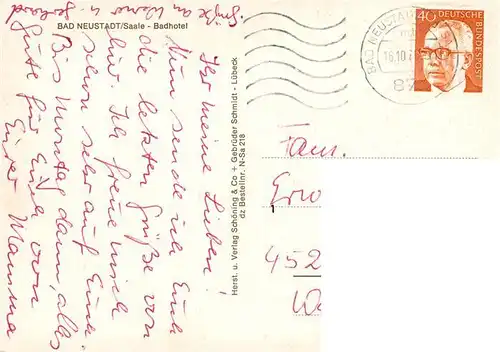 BAD NEUSTADT/Saale - Badhotel
Grüße an Werner u.
Ihr meine Lieben!
Nun sende ich Euch
die letzten Grüße von
hier. Ich freue mich
schon sehr auf Euch.
Bis Montag dann, alles
Gute für Euch von
Eurer Mamma
Herst. u. Verlag Schöning & Co + Gebrüder Schmidt - Lübeck
dz Bestellnr. N-Sa 218
BAD NEUSTADT
16.10.7
87
40 DEUTSCHE BUNDESPOST
Fam.
Erw
1
452